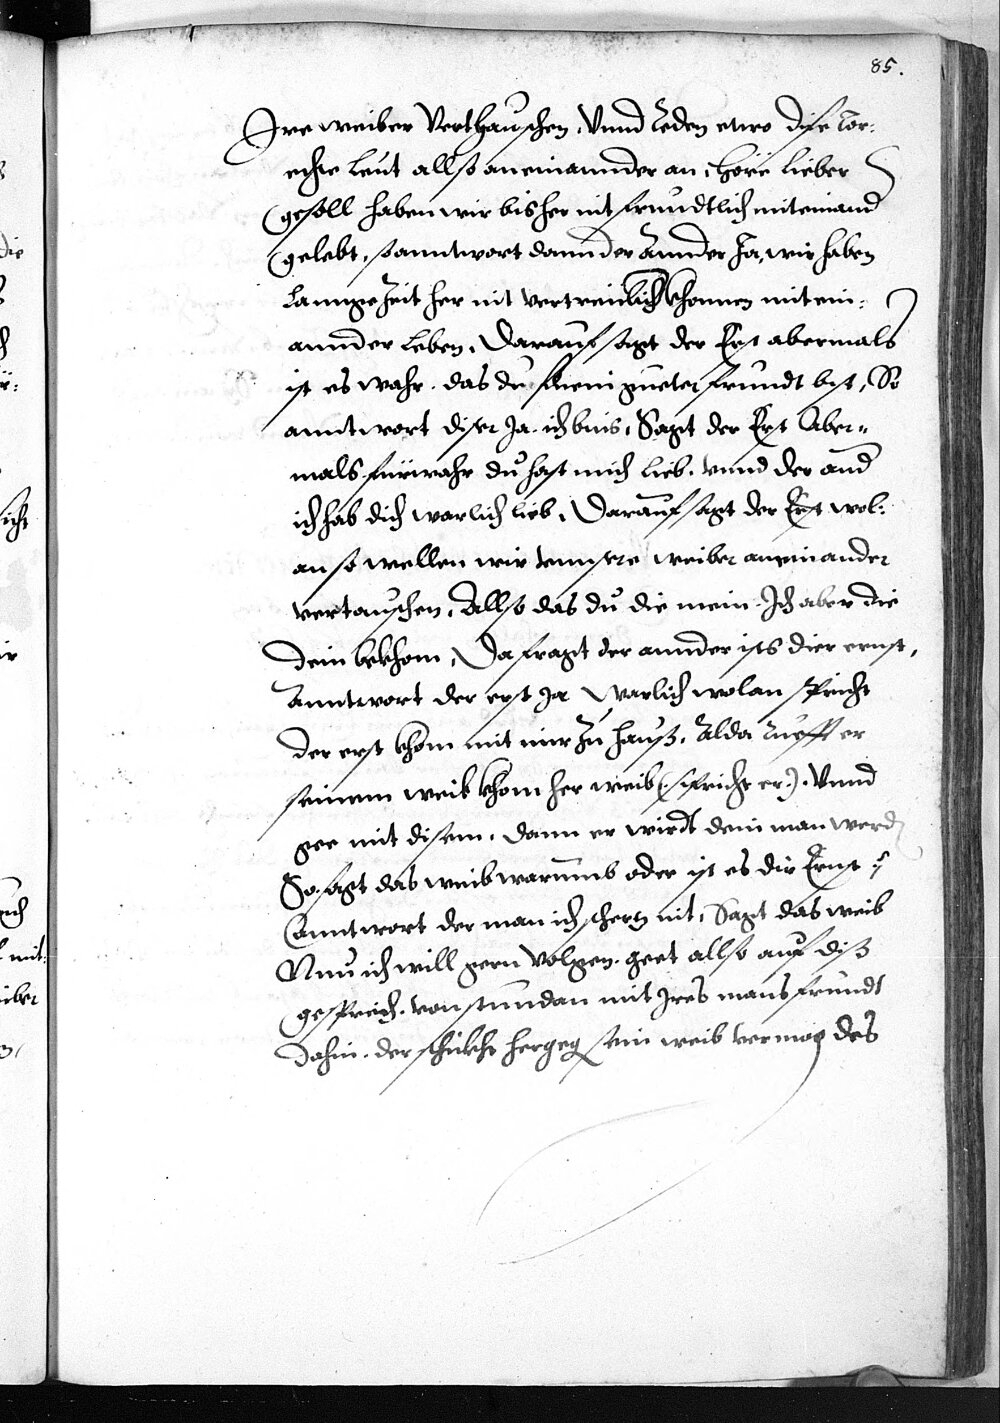 85.
Ire weiber verthauschen, Vnnd Reden etwo dise tor-
echte leut allso aneinannder an, höre lieber
gesell haben wir bisher nit frundtlich miteinand
gelebt, so anntwort dann der Annder Ja, wir haben
lannge Zeit her nit vertreulich khonnen mitein-
annder leben, Darauf sagt der Erst abermals
ist es wahr. das du mein gueter frundt bist, So
anntwort diser Ja ich bins, Sagt der Erst Aber-
mals fürwahr du hast mich lieb, vnnd der and
ich hab dich warlich lieb, Darauf sagt der Erst wol-
an so wellen wir vnnsere weiber aneinander
vertauschen, Allso das du die mein Ich aber die
dein bekhom, Da fragt der annder ists dier ernst,
Anntwort der erst Ja warlich wolan spricht
der erst khom mit mir Zu hauß, Alda Ruefft er
seinem weib khom her weib (:spricht er:), Vnnd
gee mit disem, dann er wirdt dein man werd
So sagt das weib warumb oder ist es dir Ernst,
Anntwort der man ich schertz nit, Sagt das weib
Nun ich will gern volgen, geet allso auf diß
gesprech. von stundan mit Ires mans frundt
dahin. der schickht hergeg sein weib vermög des